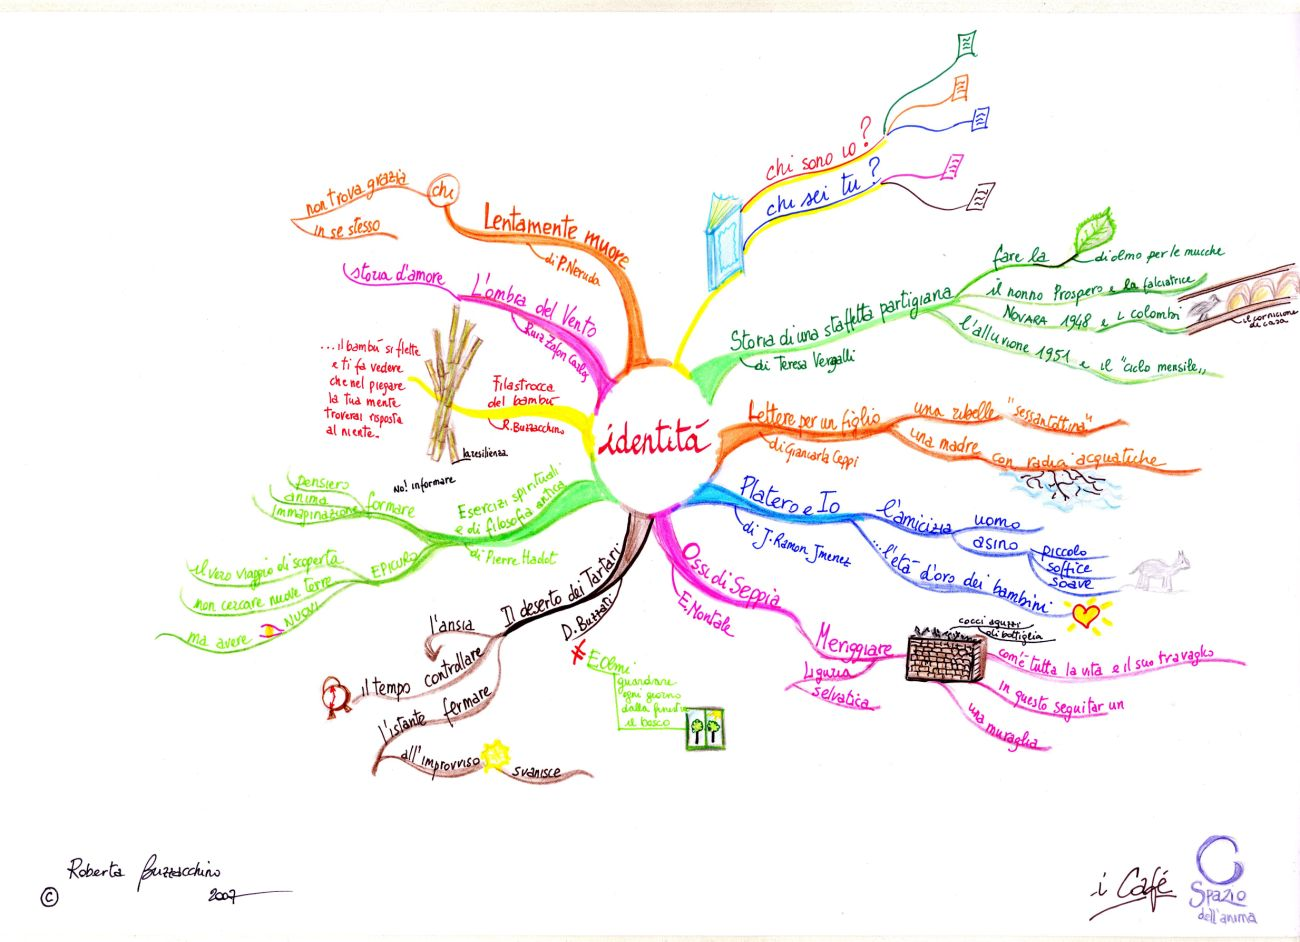 identitá
chi sono io?
chi sei tu?
Storia di una staffetta partigiana
di Teresa Vergalli
fare la
di olmo per le mucche
il nonno Prospero e la falciatrice
NOVARA 1948 e i colombi
il cornicione
di casa
l'alluvione 1951 e il "ciclo mensile,,
Lettere per un figlio
di Giancarla Ceppi
una ribelle "sessantottina"
una madre con radici acquatiche
Platero e Io
di J. Ramon Jmenez
l'amicizia
uomo
asino
piccolo
soffice
soave
...l'età d'oro dei bambini
Ossi di Seppia
E. Montale
Meriggiare
Liguria
selvatica
cocci aguzzi
di bottiglia
com'è tutta la vita e il suo travaglio
in questo seguitar un
una muraglia
Il deserto dei Tartari
D. Buzzati
≠
E. Olmi
guardare
ogni giorno
dalla finestra
il bosco
l'ansia
il tempo controllare
l'istante fermare
all'improvviso
svanisce
Esercizi spirituali
e di filosofia antica
di Pierre Hadot
No! informare
formare
pensiero
anima
immaginazione
EPICURO
il vero viaggio di scoperta
non cercare nuove terre
ma avere
NUOVI
Filastrocca
del bambù
R. Buzzacchino
la resilienza
...il bambù si flette
e ti fa vedere
che nel piegare
la tua mente
troverai risposta
al niente.
L'ombra del Vento
Ruiz Zafon Carlos
storia d'amore
Lentamente muore
di P. Neruda
chi
non trova grazia
in se stesso
Roberta Buzzacchino
2007
©
i Café
Spazio
dell'anima